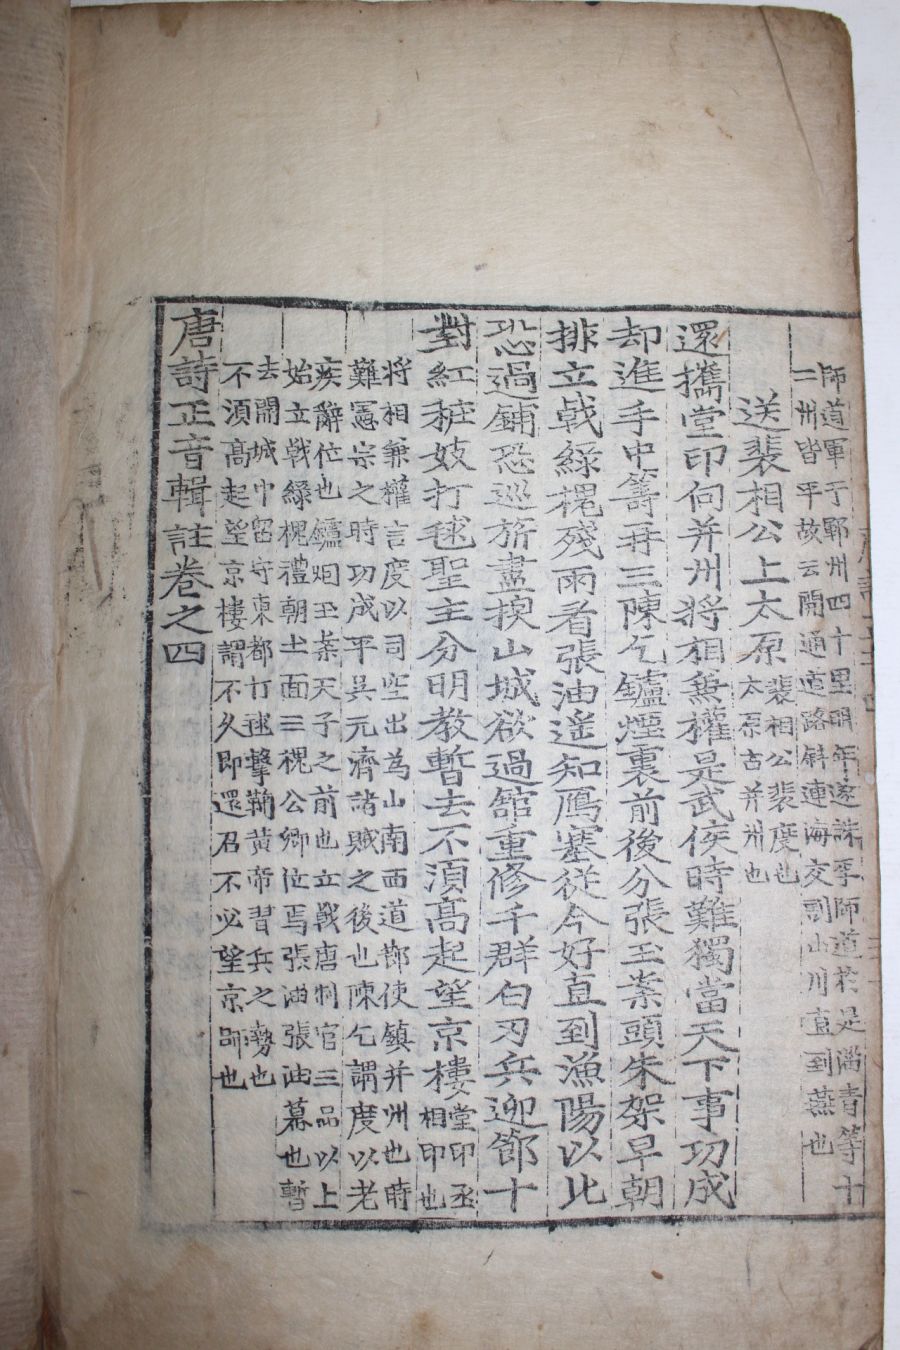 師道軍于鄆州四十里明年遂誅李師道於是淄青等十
二州皆平故云開通道路斜連海交割山川直到燕也
送裴相公上太原
裴相公裴度也
太原古并州也
還攜堂印向并州將相兼權是武侯時難獨當天下事功成
却進手中籌再三陳乞鑪煙裏前後分張玉案頭朱架早朝
排立戟綠槐殘雨看張油遙知鴈塞從今好直到漁陽以北
恐過鋪恐巡旂盡換山城欲過舘重修千群白刃兵迎節十
對紅粧妓打毬聖主分明教暫去不須高起望京樓
堂印丞
相印也
將相兼權言度以司空出為山南西道節使鎮并州也時
難憲宗之時功成平吳元濟諸賊之後也陳乞謂度以老
疾辭位也鑪烟玉案天子之前也立戟唐制官三品以上
始立戟綠槐禮朝士面三槐公卿位焉張油張油幕也暫
去開城中留守東都打毬擊鞠黃帝習兵之勢也
不須高起望京樓謂不久即還召不必望京師也
唐詩正音輯註卷之四